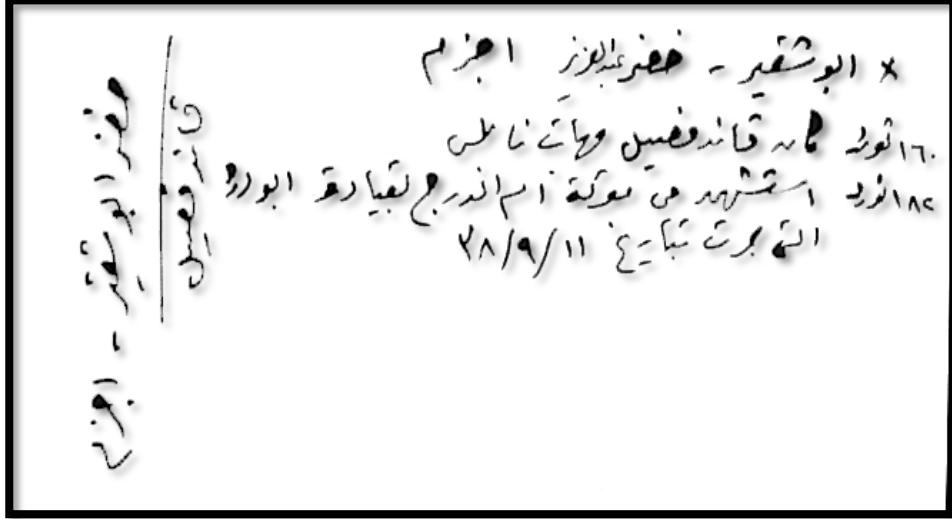 × ابوشقير - خضر عبدالعزيز اجزم
١٦٠ ثورة كان قائد فصيل مهمات نابلس
١٨٢ ثورة استشهد في معركة ام الدرج بقيادة ابو درة
التي جرت بتاريخ ٣٨/٩/١١
قائد فصيل
خضر ابو شقير، اجزم